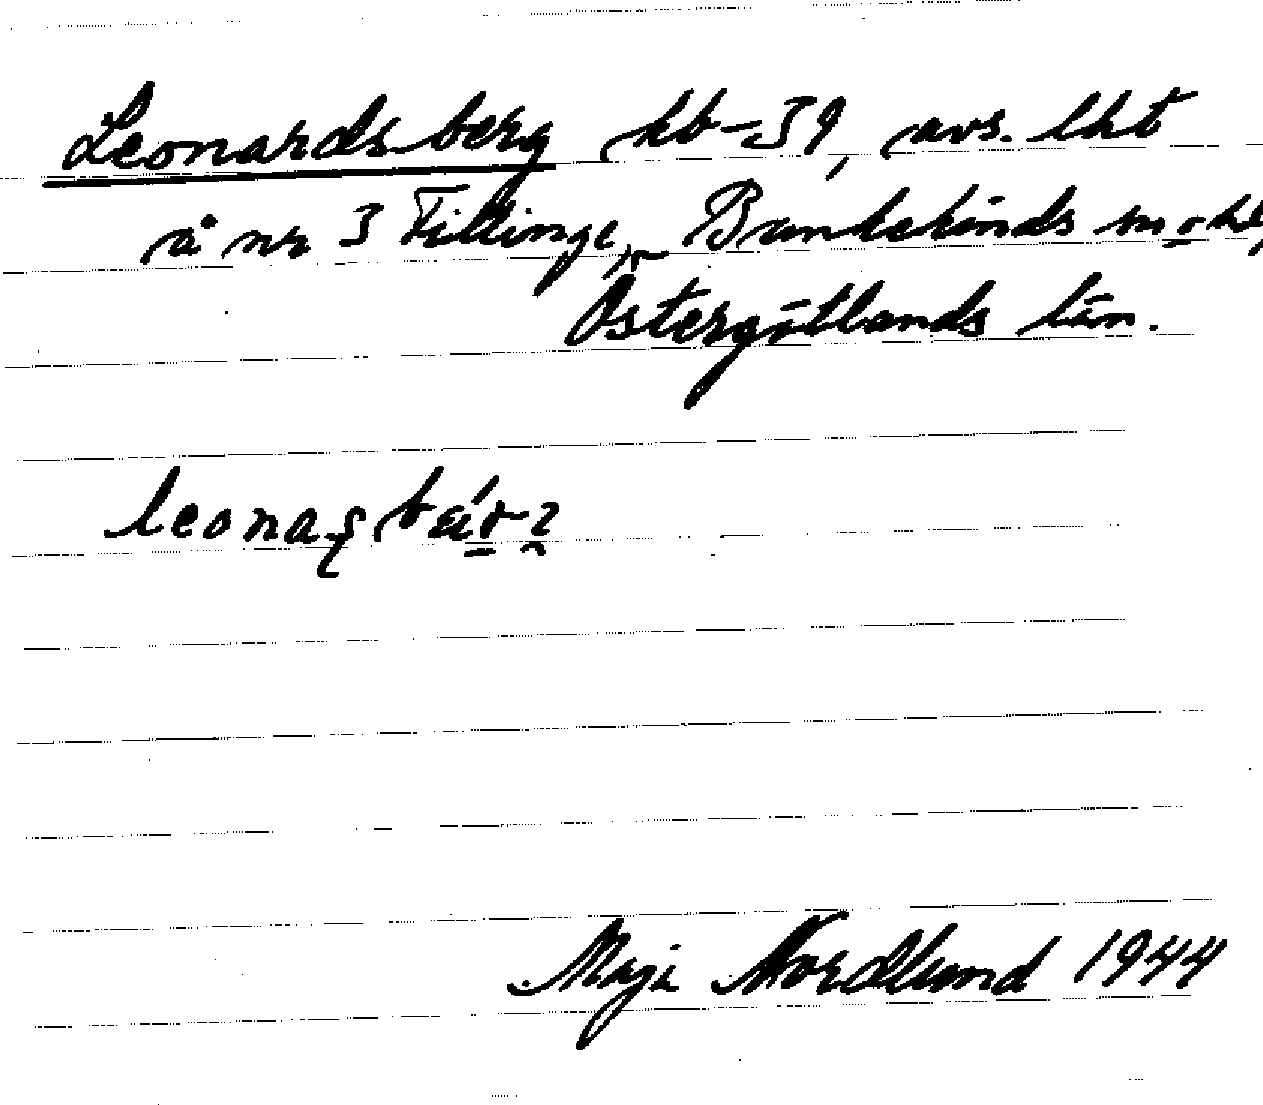 Leonardsberg kb-39, avs. lht
å nr 3 Fillinge, Bankekinds sn o hd,
Östergötlands län.
Maja Nordlund 1944